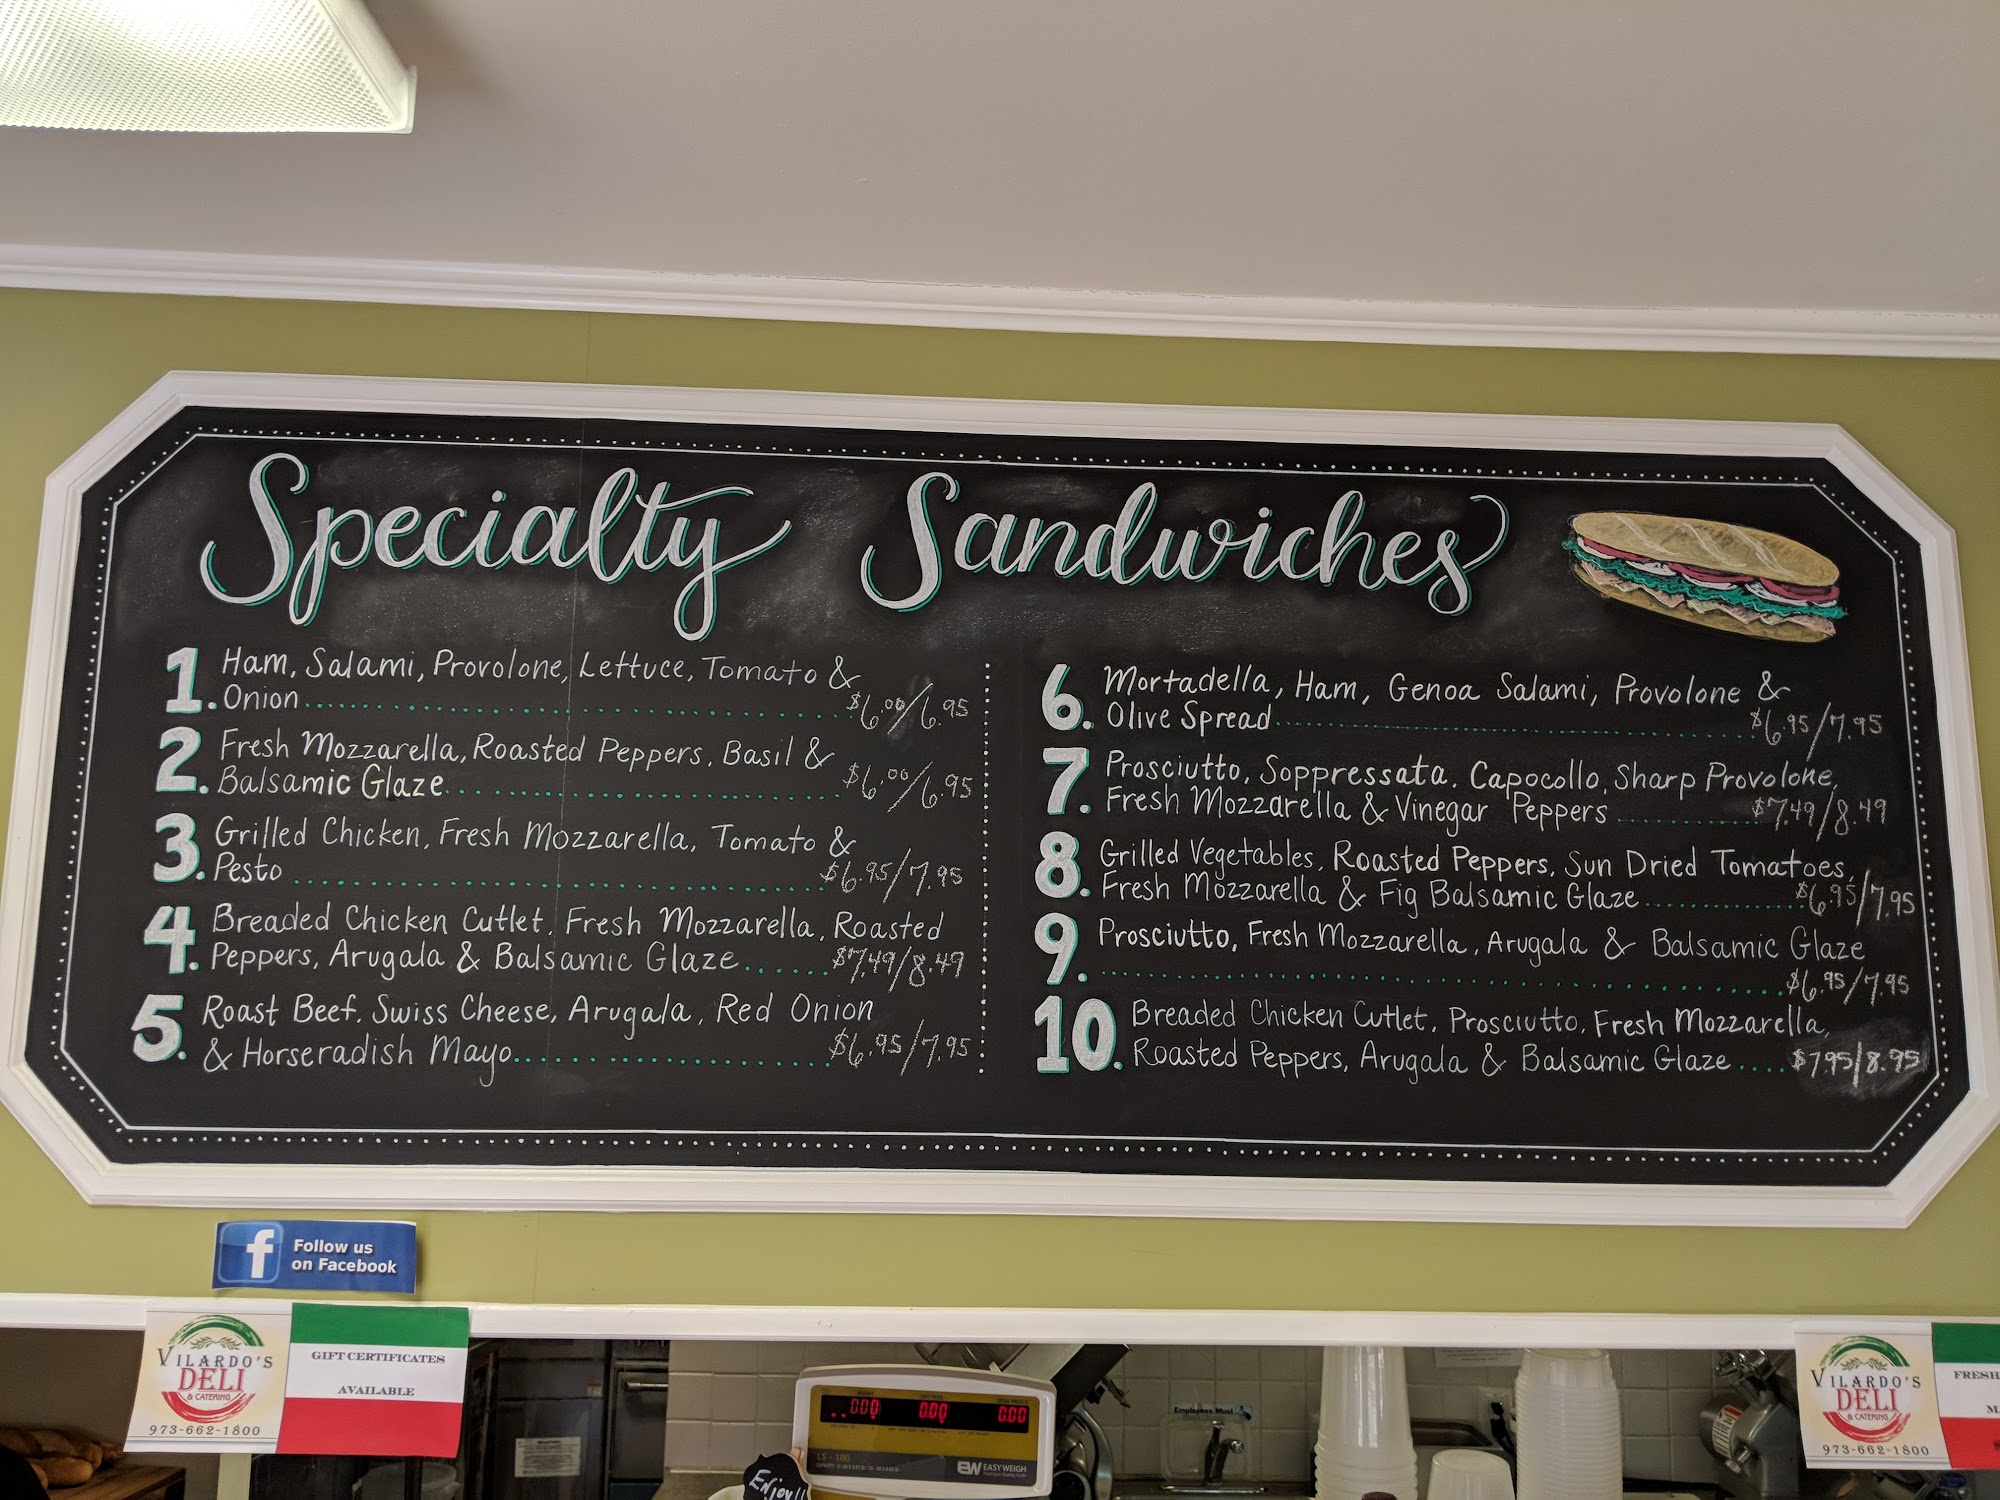 Specialty Sandwiches
1. Ham, Salami, Provolone, Lettuce, Tomato &
Onion.......... $6.00/6.95
2. Fresh Mozzarella, Roasted Peppers, Basil &
Balsamic Glaze.......... $6.00/6.95
3. Grilled Chicken, Fresh Mozzarella, Tomato &
Pesto .......... $6.95/7.95
4. Breaded Chicken Cutlet, Fresh Mozzarella, Roasted
Peppers, Arugala & Balsamic Glaze...... $7.49/8.49
5. Roast Beef, Swiss Cheese, Arugala, Red Onion
& Horseradish Mayo.......... $6.95/7.95
6. Mortadella, Ham, Genoa Salami, Provolone &
Olive Spread.......... $6.95/7.95
7. Prosciutto, Soppressata, Capocollo, Sharp Provolone,
Fresh Mozzarella & Vinegar Peppers .......... $7.49/8.49
8. Grilled Vegetables, Roasted Peppers, Sun Dried Tomatoes,
Fresh Mozzarella & Fig Balsamic Glaze.......... $6.95/7.95
9. Prosciutto, Fresh Mozzarella, Arugala & Balsamic Glaze
.......... $6.95/7.95
10. Breaded Chicken Cutlet, Prosciutto, Fresh Mozzarella,
Roasted Peppers, Arugala & Balsamic Glaze .... $7.95/8.95
f Follow us
on Facebook
VILARDO'S
DELI
& CATERING
973-662-1800
GIFT CERTIFICATES
AVAILABLE
0.00 0.00 0.00
LS-100
EW EASY WEIGH
Enjoy!!
Employees Must
VILARDO'S
DELI
& CATERING
973-662-1800
FRESH